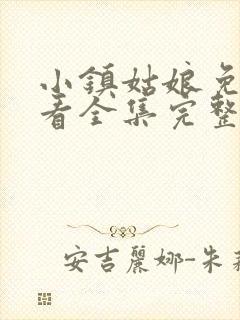 小鎮姑娘免
看全集完整
安吉麗娜-朱莉